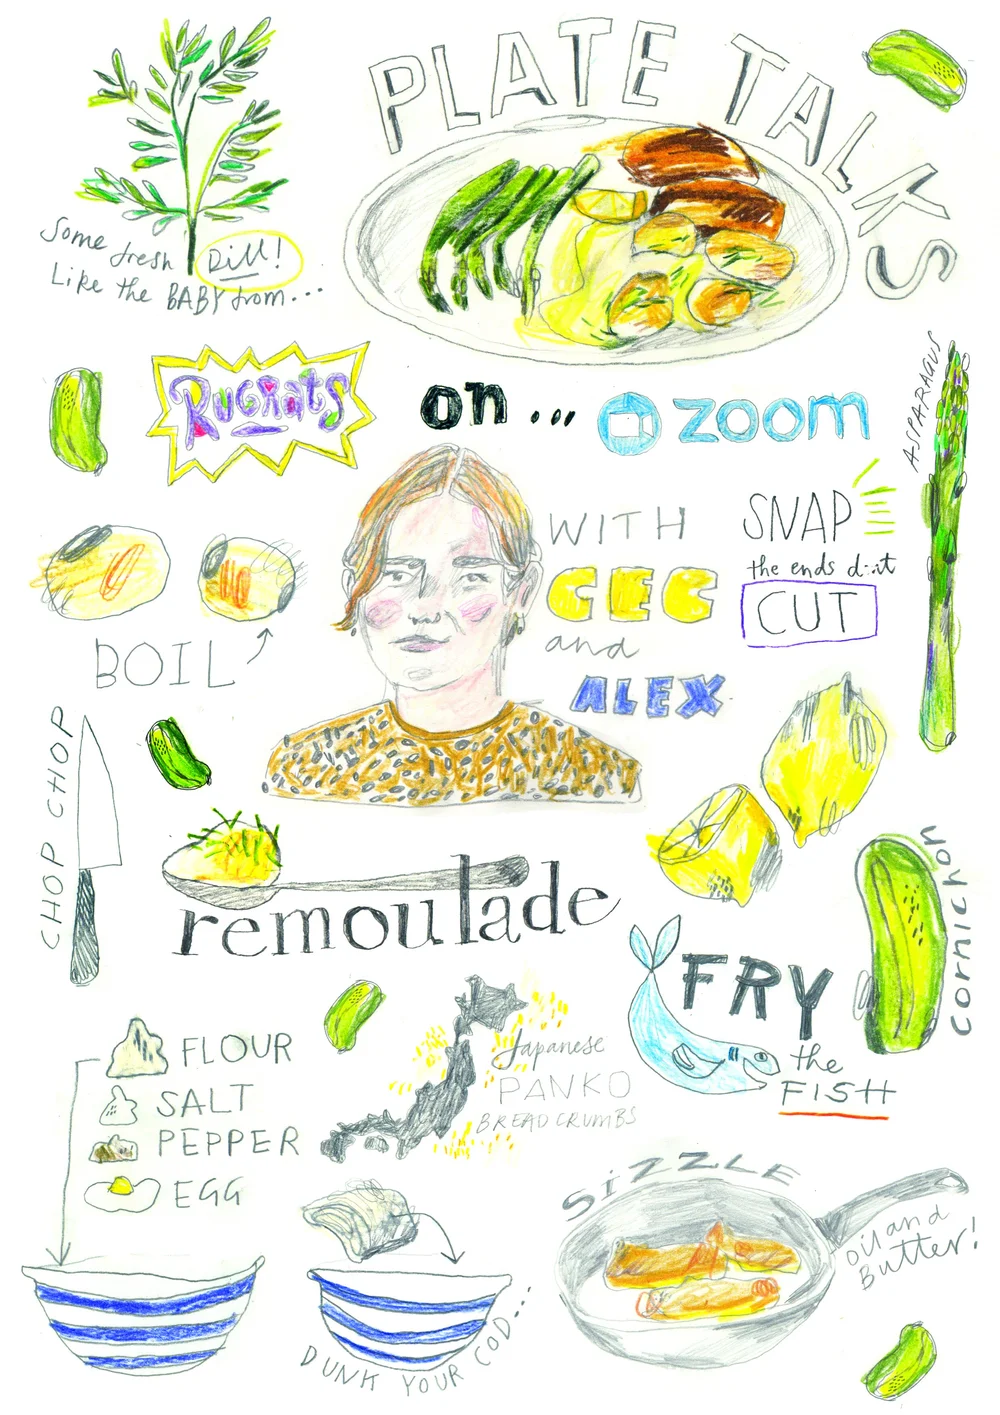 PLATE TALKS
Some fresh Dill!
Like the BABY from...
RUGRATS
on...
zoom
ASPARAGUS
WITH
CEC
and
ALEX
SNAP
the ends don't
CUT
BOIL
CHOP CHOP
remoulade
cornichon
FRY
the
FISH
Japanese
PANKO
BREADCRUMBS
FLOUR
SALT
PEPPER
EGG
DUNK YOUR COD...
SIZZLE
oil and
Butter!